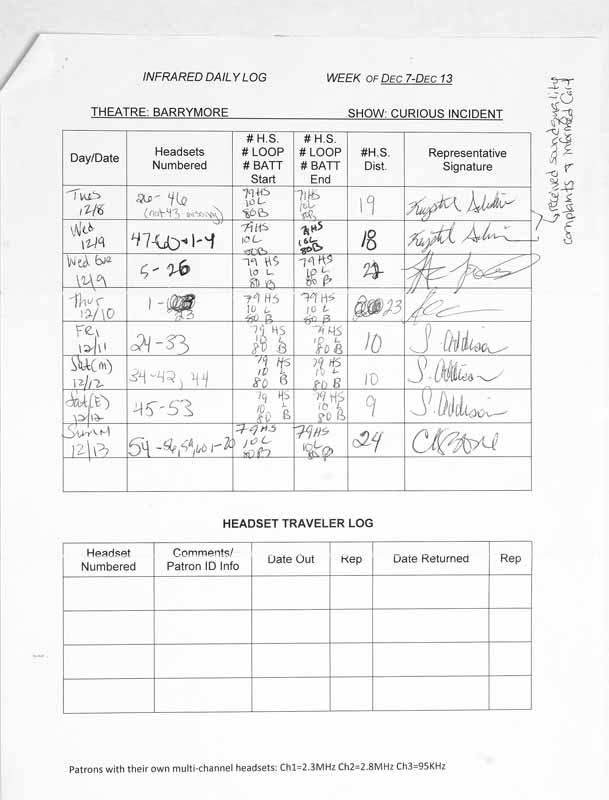 INFRARED DAILY LOG WEEK OF DEC 7-DEC 13
THEATRE: BARRYMORE SHOW: CURIOUS INCIDENT
received sound quality
complaints & informed Carl
Day/Date Headsets Numbered # H.S. # LOOP # BATT Start # H.S. # LOOP # BATT End #H.S. Dist. Representative Signature
Tues 12/8 26-46 (not 43 missing) 79HS 10L 80B 79HS 10L 80B 19 Krystal
Wed 12/9 47-60 + 1-4 79HS 10L 80B 79HS 10L 80B 18 Krystal
Wed Eve 12/9 5-26 79 HS 10 L 80 B 79 HS 10 L 80 B 22
Thur 12/10 1-23 79HS 10 L 80 B 79HS 10 L 80 B 23
FRI 12/11 24-33 79 HS 10 L 80 B 79 HS 10 L 80 B 10 S. Addison
Sat(m) 12/12 34-42, 44 79 HS 10 L 80 B 79 HS 10 L 80 B 10 S. Addison
Sat(E) 12/12 45-53 79 HS 10 L 80 B 79 HS 10 L 80 B 9 S. Addison
Sun M 12/13 54-56, 59, 60 1-20 79HS 10L 80B 79HS 10L 80B 24
HEADSET TRAVELER LOG
Headset Numbered Comments/ Patron ID Info Date Out Rep Date Returned Rep
Patrons with their own multi-channel headsets: Ch1=2.3MHz Ch2=2.8MHz Ch3=95KHz